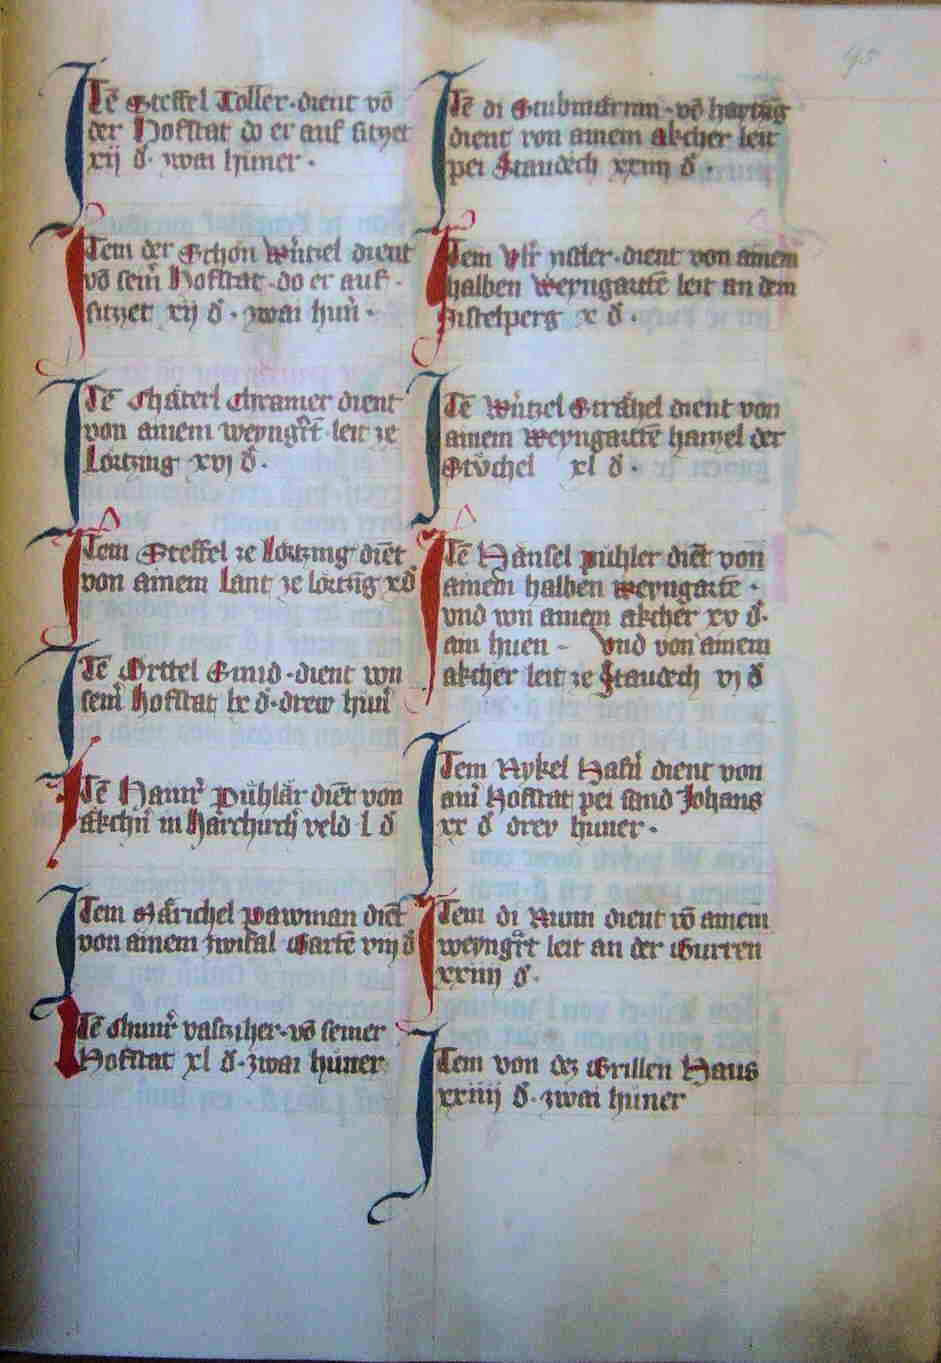 Itē Steffel Toller · dient vō
der Hofstat do er auf sitzet
xij d̄ · zwai hüner ·
Item der Schon Würtzel dient
vō sein̄ Hofstat · do er auf ·
sitzet xij d̄ · zwai hün̄ ·
Itē Chäterl Chramer dient
von ainem weyngr̄t · leit ze
Loitzing xvj d̄ ·
Item Steffel ze Loitzing diēt
von ainem Lant ze loitzīg xd̄
Itē Örttel Smid · dient von
sein̄ Hofstat lx d̄ · drew hün̄
Itē Hainr̄ Pühlär diēt von
äkchn̄ in Harchirch̄ veld · l d̄
Item Märichel Pawman diēt
von ainem zwifal Gartē viij d̄
Itē Chunr̄ vaschher · vō seiner
Hofstat xl d̄ · zwai hüner
Itē di Stubmärinn · vō hartag
dient von ainem akcher leit
pei Staudech xxiiij d̄ ·
Item Vlr̄ yster · dient von ainem
halben weyngartē leit an dem
Nistelperg x d̄ ·
Itē Würtzel Strähel dient von
ainem Weyngartē haizzel der
Stöchel xl d̄ ·
Itē Hänsel pühler diēt von
ainem halben weyngartē ·
vnd von ainem akcher xv d̄ ·
ain huen – Vnd von ainem
akcher leit ze Staudech vj d̄
Item Nykel Hafn̄ dient von
ain̄ Hofstat pei sand Johans
xx d̄ drev hüner ·
Item di Nunn dient vō ainem
weyngr̄t leit an der Gurren
xxiiij d̄ ·
Item von dez Grillen Haus
xxiiij d̄ · zwai hüner